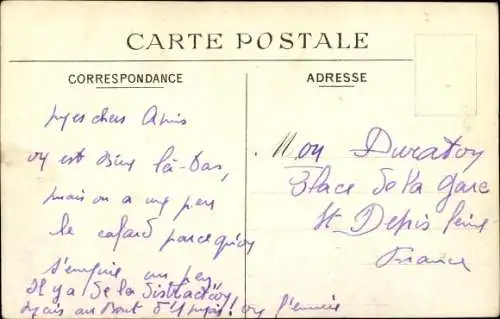 CARTE POSTALE
CORRESPONDANCE
ADRESSE
Mes chers Amis
on est bien là-bas,
mais on a un peu
le cafard parce qu'on
s'ennuie un peu
Il y a de la distraction
mais au bout d'1 mois! on s'ennuie
Mon Duratoy
3 Place de la Gare
St Denis Seine
France